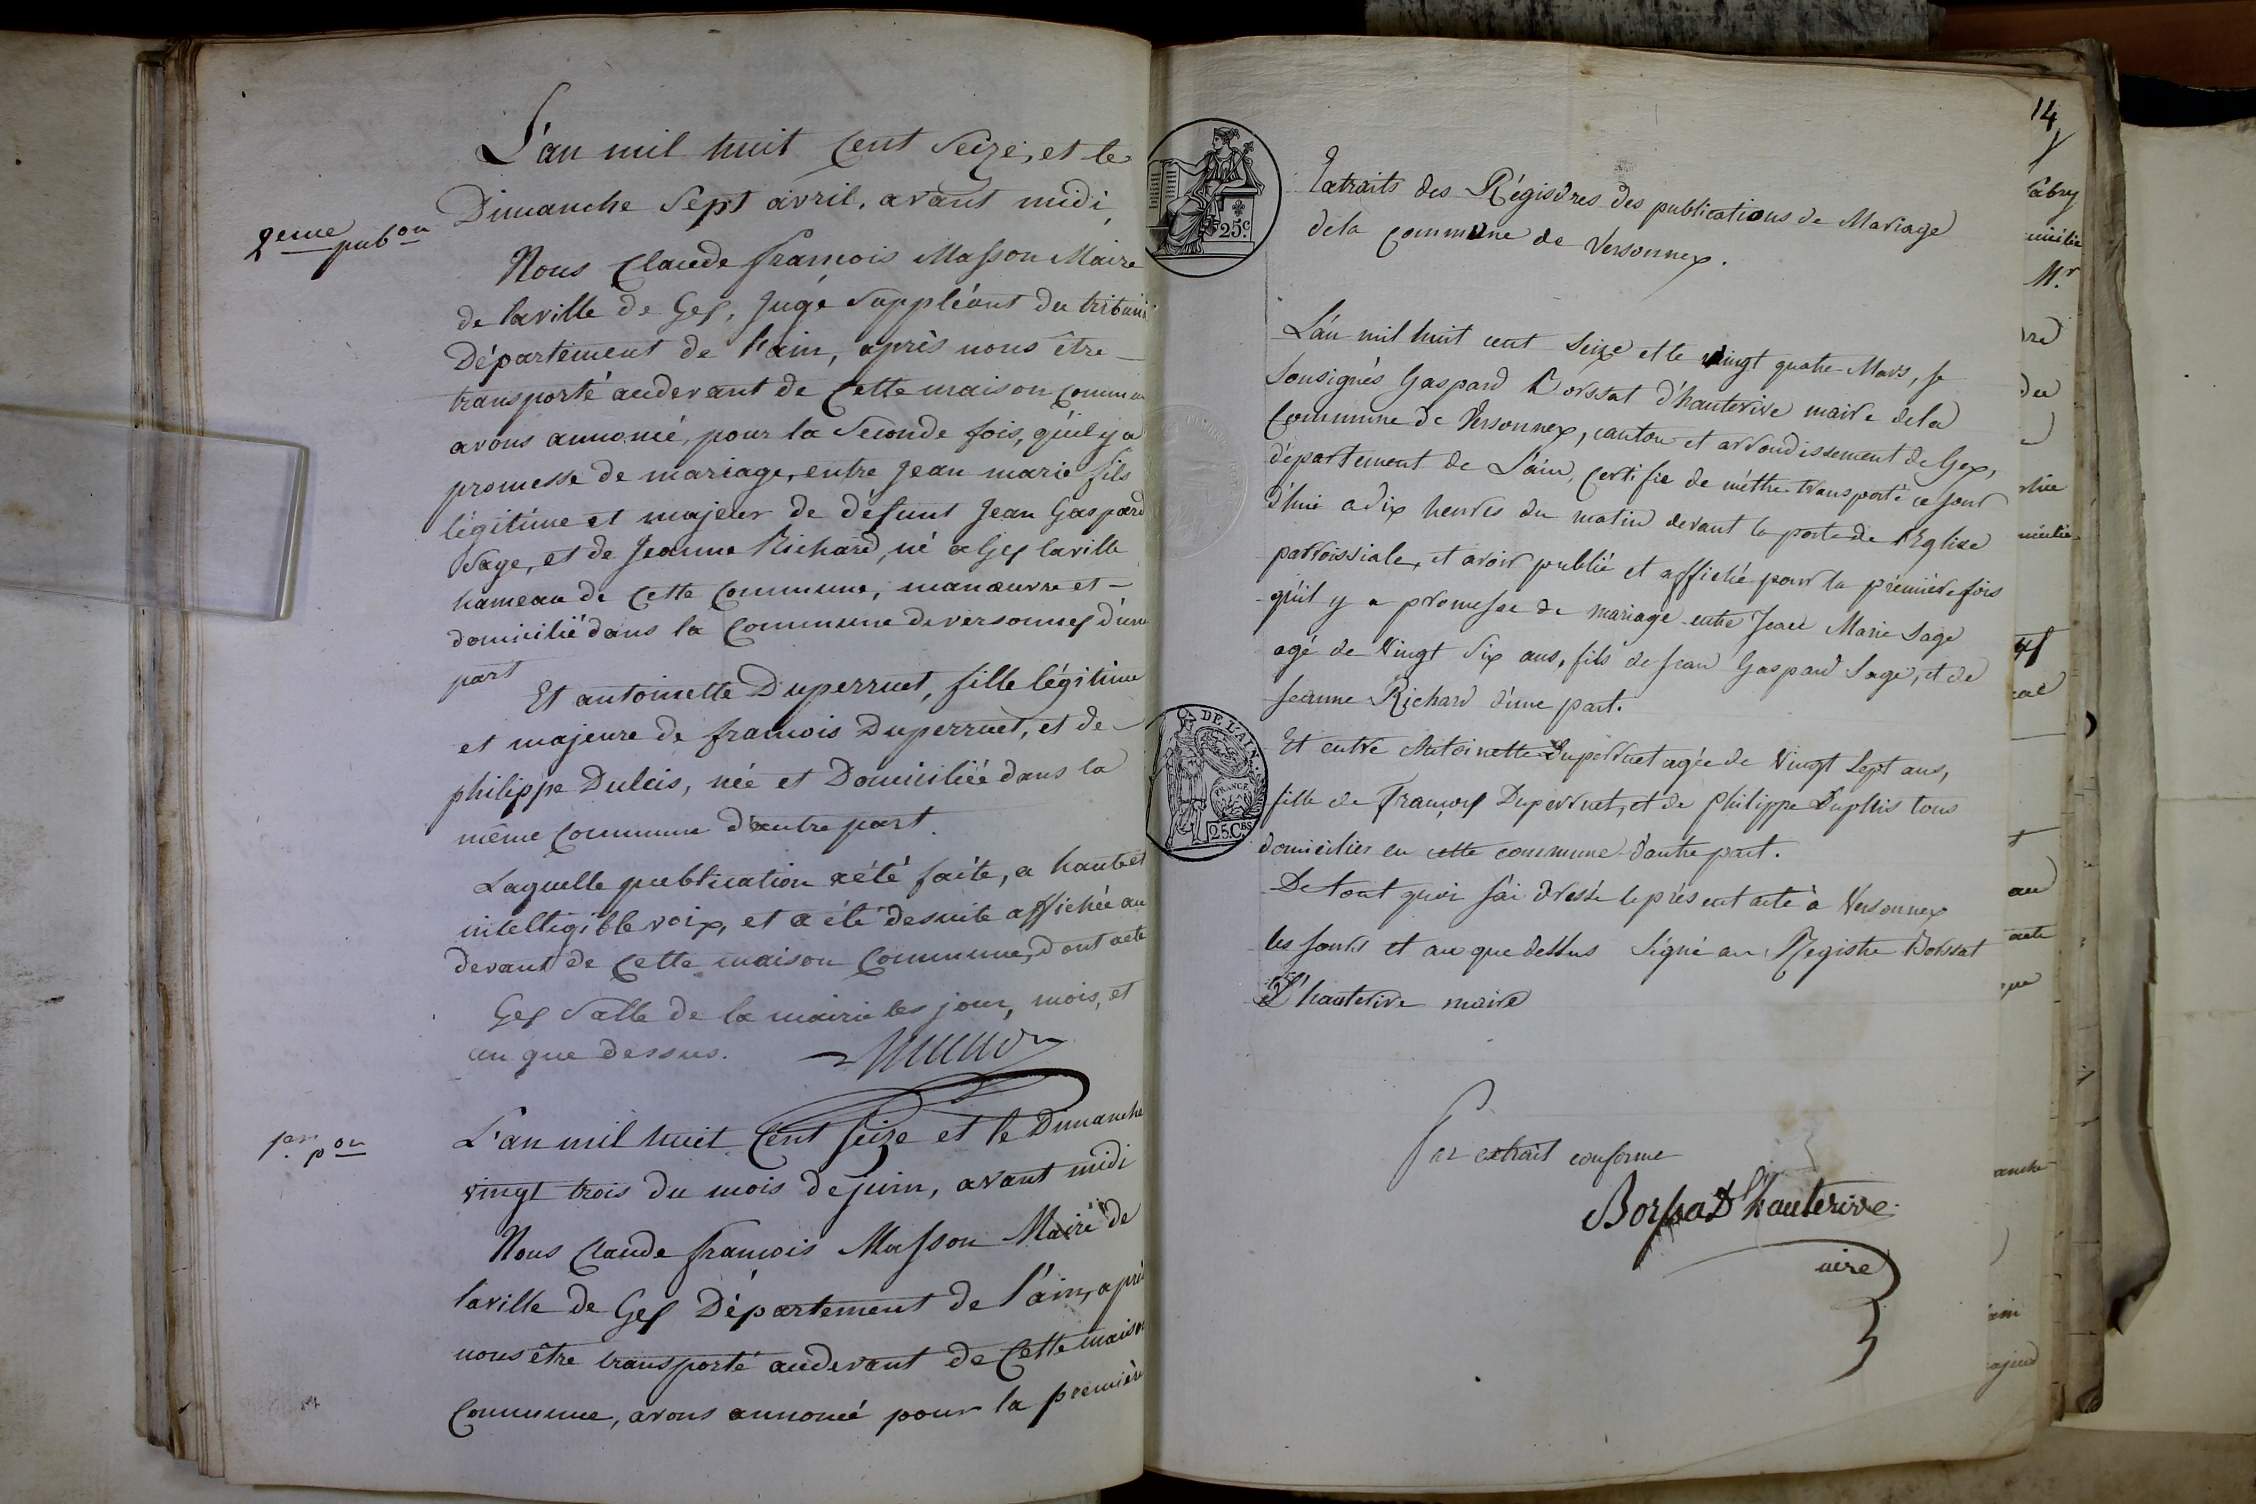 L'an mil huit Cent Seize, et le
Dimanche Sept avril, avant midi
2eme pubon
Nous Claude françois Masson Maire
de laville de Gex, Juge Suppléant du tribunal
Département de l'ain, après nous être
transporté audevant de Cette maison Commune
avons annoncé, pour la Seconde fois, qu'il y a
promesse de mariage, entre Jean marie fils
légitime et majeur de défunt Jean Gaspard
Sage, et de Jeanne Richard, né a Gex laville
hameau de Cette Commune, manœuvre et
domicilié dans la Commune de versonnex d'une
part
Et antoinette Duperruet, fille légitime
et majeure de francois Duperruet, et de
philippe Dulcis, née et Domiciliée dans la
même Commune d'autre part.
Laquelle publication a été faite, a haute et
intelligible voix, et a été desuite affichée au
devant de Cette maison Commune, dont acte
Gex Salle de la mairie les jour, mois, et
an que dessus.
1ere pon
L'an mil huit Cent Seize et le Dimanche
vingt trois du mois de juin, avant midi
Nous Claude francois Masson Maire de
laville de Gex Département de l'ain, après
nous être transporté audevant de Cette maison
Commune, avons annoncé pour la première
14
25c.
Extraits des Régistres des publications de Mariage
dela commune de Versonnex.
L'an mil huit cent Seize et le vingt quatre Mars, Je
Sousignés Gaspard Borssat d'hauterive maire dela
Commune de Versonnex, canton et arrondissement de Gex,
département de L'ain, Certifie de m'être transporté ce jour
d'hui a dix heures du matin devant la porte de l'Eglise
parroissiale, et avoir publié et affiché pour la première fois
qu'il y a promesse de mariage entre Jean Marie Sage
agé de Vingt Six ans, fils de Jean Gaspard Sage, et de
Jeanne Richard d'une part.
DE L'AIN
FRANCE
25 Ces
Et entre Antoinette Duperruet agée de Vingt Sept ans,
fille de François Duperruet, et de Philippe Duplis tous
domiciliés en cette commune d'autre part.
De tout quoi j'ai dressé le présent acte à Versonnex
les jours et an que dessus Signé au Registre Borssat
D'hauterive maire
Par extrait conforme
Borssat D'hauterive
aire